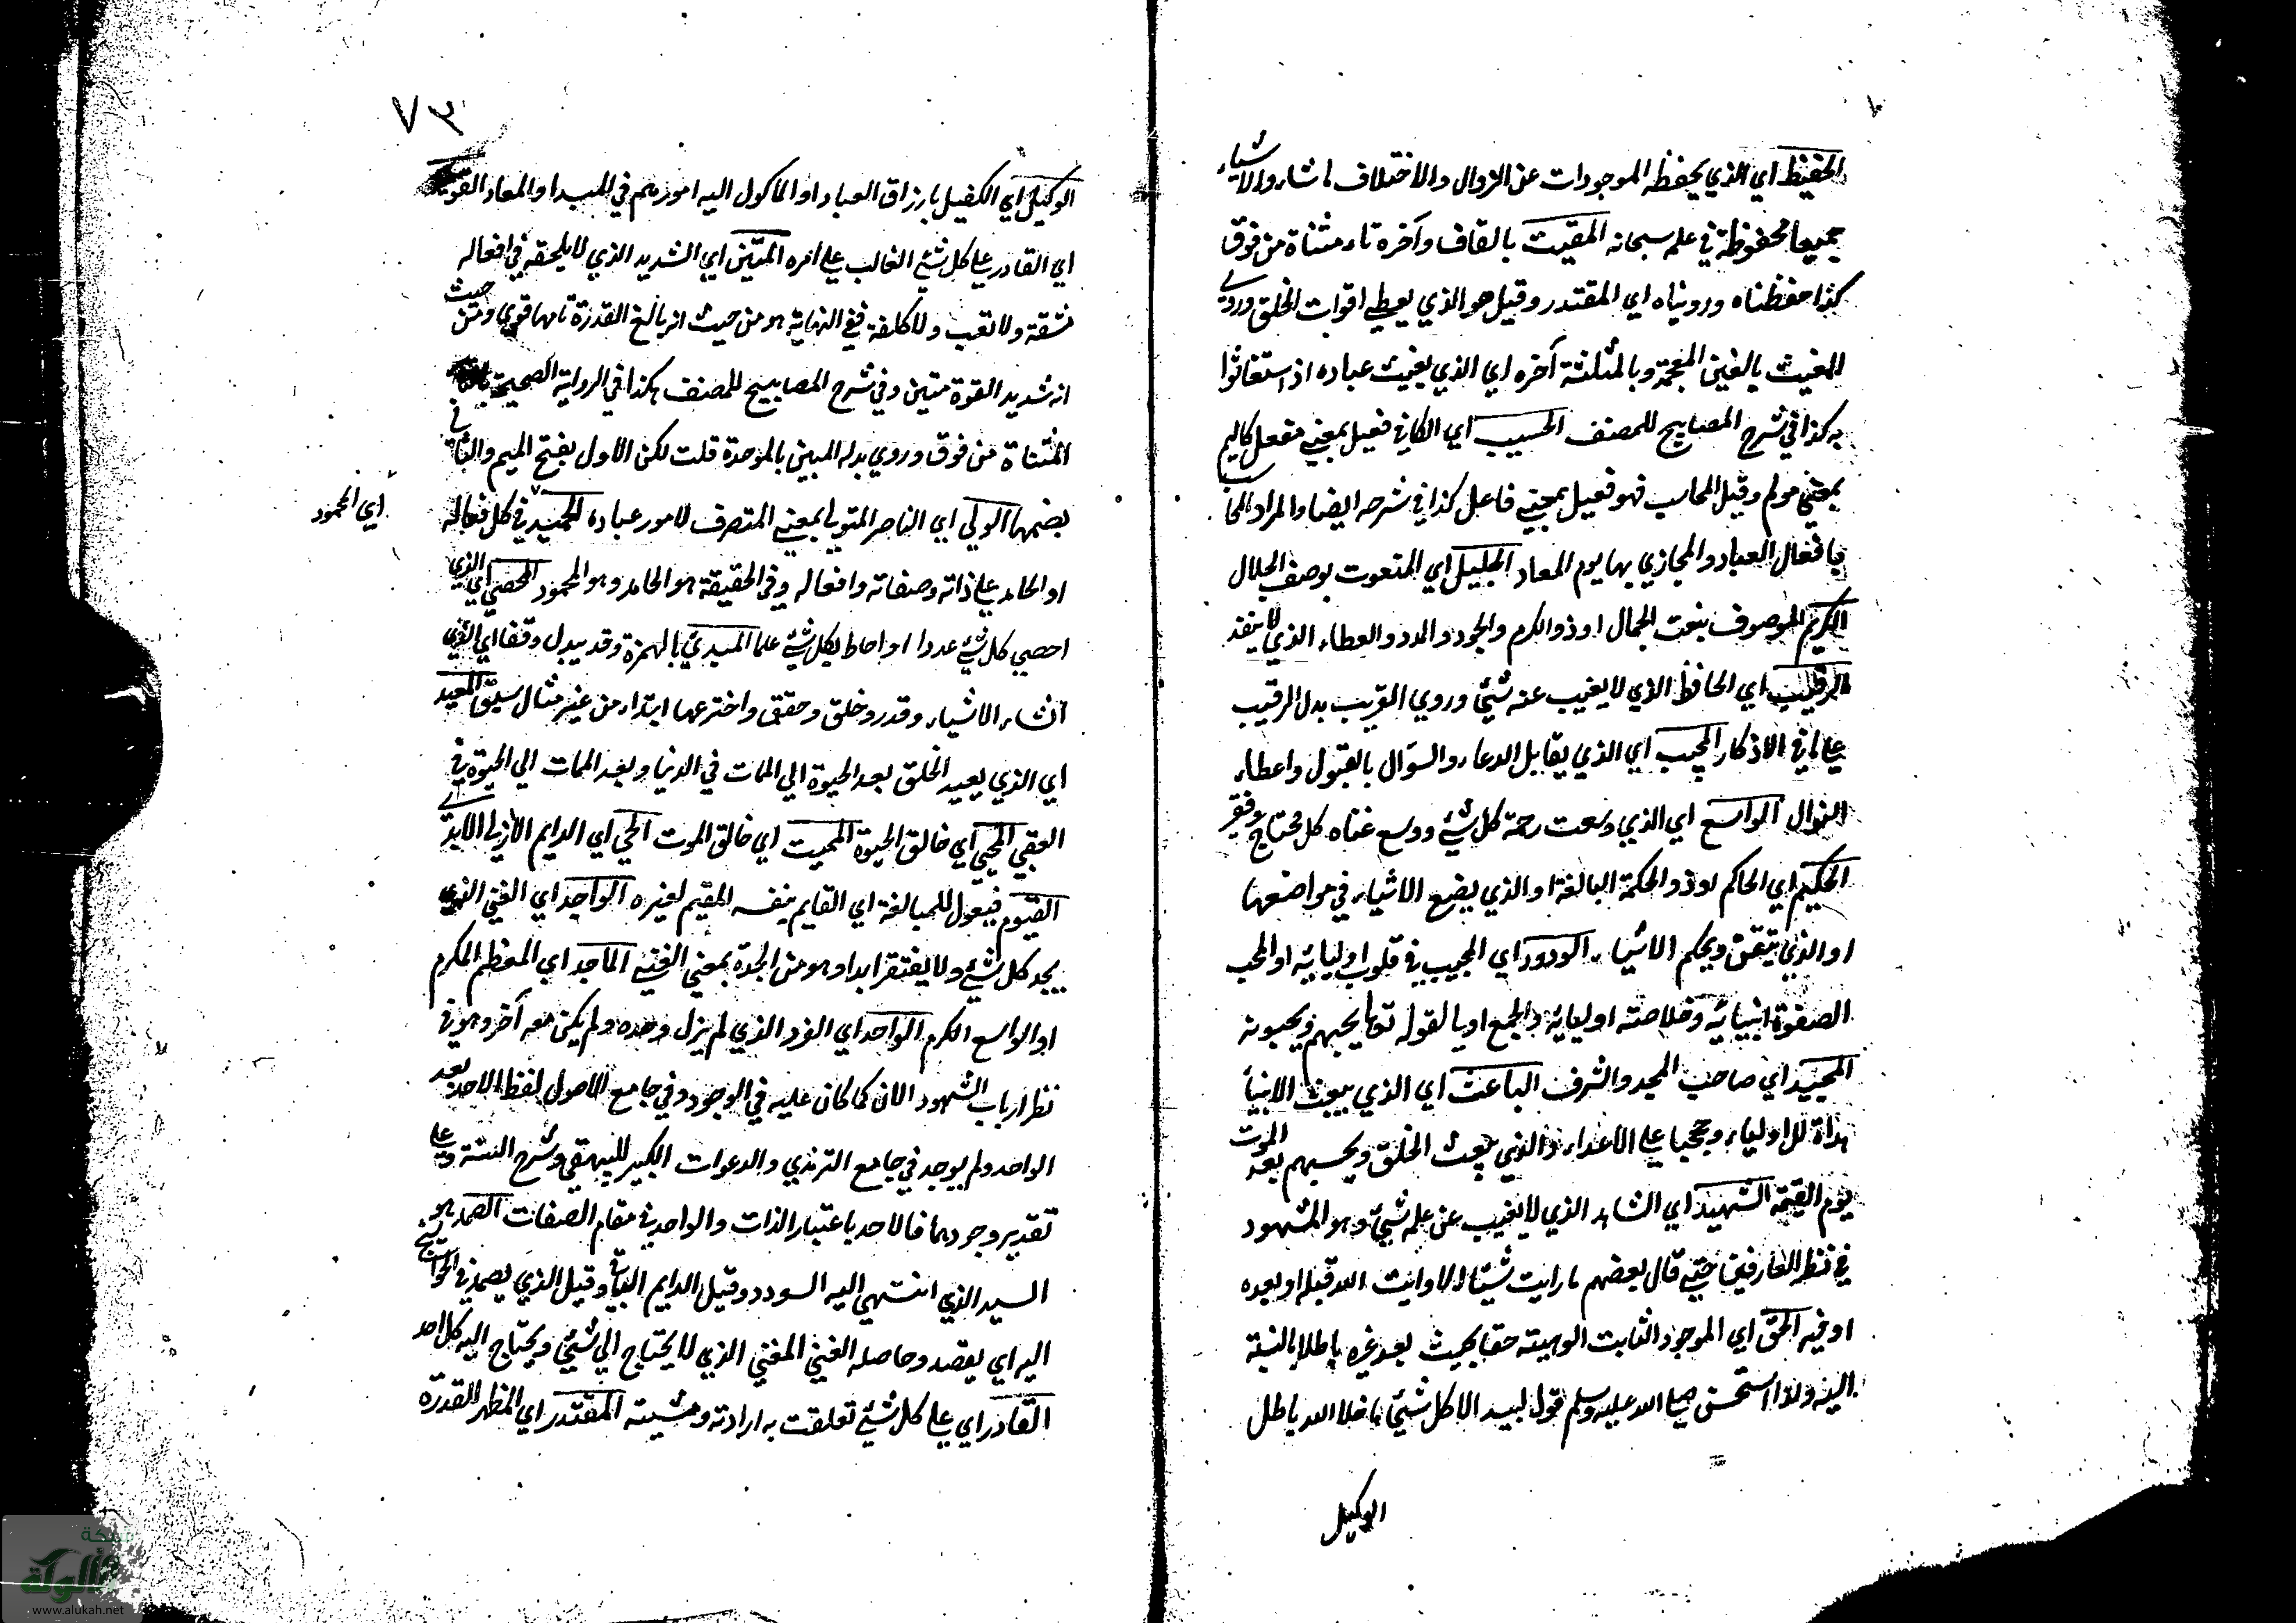 الحفيظ اي الذي يحفظ الموجودات عن الزوال والاختلاف ما شاء والاشياء
جميعا محفوظة في علمه سبحانه المقيت بالقاف وآخره تاء مثناة من فوق
كذا حفظناه ورويناه اي المقتدر وقيل هو الذي يعطي اقوات الخلق وروي
المغيث بالغين المعجمة وبالمثلثة آخره اي الذي يغيث عباده اذا استغاثوا
به كذا في شرح المصابيح للمصنف الحسيب اي الكافي فعيل بمعني مفعل كاليم
بمعني مولم وقيل المحاسب فهو فعيل بمعني فاعل كذا في شرحه ايضا والمراد المحاسب
بافعال العباد والمجازي بها يوم المعاد الجليل اي المنعوت بوصف الجلال
الكريم الموصوف بنعت الجمال او ذو الكرم والجود والمدد والعطاء الذي لا ينفد
الرقيب اي الحافظ الذي لا يغيب عنه شيء وروي القريب بدل الرقيب
علي ما في الاذكار المجيب اي الذي يقابل الدعاء والسؤال بالقبول واعطاء
النوال الواسع اي الذي وسعت رحمته كل شيء ووسع غناه كل محتاج وفقر
الحكيم اي الحاكم او ذو الحكمة البالغة او الذي يضع الاشياء في مواضعها
او الذي يتقن ويحكم الاشياء الودود اي الحبيب في قلوب اوليائه او المحب
الصفوة انبيائه وخلاصته اوليائه والجمع اولي لقوله تعالي يحبهم ويحبونه
المجيد اي صاحب المجد والشرف الباعث اي الذي يبعث الانبيأ
هداة للاولياء وحججا علي الاعداء والذي يبعث الخلق ويحسبهم بعد الموت
يوم القيمة الشهيد اي الشاهد الذي لا يغيب عن علمه شيء وهو المشهود
في نظر العارفين حتي قال بعضهم ما رايت شيئا الا ورايت الله قبله او بعده
او فيه الحق اي الموجود الثابت الوهيته حقا بحيث يعد غيره باطلا بالنسبة
اليه ولذا استحسن صلي الله عليه وسلم قول لبيد الا كل شيء ما خلا الله باطل
الوكيل
٧٣
الوكيل اي الكفيل بارزاق العباد او الماكول اليه امورهم في المبدا والمعاد القوي
اي القادر علي كل شيء الغالب علي امره المتين اي الشديد الذي لا يلحقه في افعاله
مشقة ولا تعب ولا كلفة ففي النهاية هو من حيث انه بالغ القدرة تامها قوي ومن حيث
انه شديد القوة متين وفي شرح المصابيح للمصنف هكذا في الرواية الصحيحة بالتاء
المثناة من فوق وروي بدله المبين بالموحدة قلت لكن الاول بفتح الميم والثاني
بضمها الولي اي الناصر المتولي بمعني المتصرف لامور عباده الحميد في كل فعاله
اي المحمود
او الحامد علي ذاته وصفاته وافعاله وفي الحقيقة هو الحامد وهو المحمود المحصي اي الذي
احصي كل شيء عددا او احاط بكل شيء علما المبدئ بالهمزة وقد يبدل وقفا اي الذي
انشاء الاشياء وقدر وخلق وحقق واخترعها ابتداء من غير مثال سبق المعيد
اي الذي يعيد الخلق بعد الحيوة الي الممات في الدنيا وبعد الممات الي الحيوة في
العقبي المحيي اي خالق الحيوة المميت اي خالق الموت الحي اي الدايم الازلي الابدي
القيوم فيعول للمبالغة اي القايم بنفسه المقيم لغيره الواجد اي الغني الذي
يجد كل شيء ولا يفتقر ابدا وهو من الجدة بمعني الغني الماجد اي المعظم المكرم
او الواسع الكرم الواحد اي الفرد الذي لم يزل وحده ولم يكن معه آخر وهو في
نظر ارباب الشهود الان كما كان عليه في الوجود وفي جامع الاصول لفظ الاحد بعد
الواحد ولم يوجد في جامع الترمذي والدعوات الكبير للبيهقي وشرح السنة وعلي
تقدير وجودهما فالاحد باعتبار الذات والواحد في مقام الصفات الصمد هو
السيد الذي انتهي اليه السودد وقيل الدايم الباقي وقيل الذي يصمد في الحوائج
اليه اي يقصد وحاصله الغني المغني الذي لا يحتاج الي شيء ويحتاج اليه كل احد
القادر اي علي كل شيء تعلقت به ارادته ومشيته المقتدر اي المظهر القدرة
شبكة
الألوكة
www.alukah.net